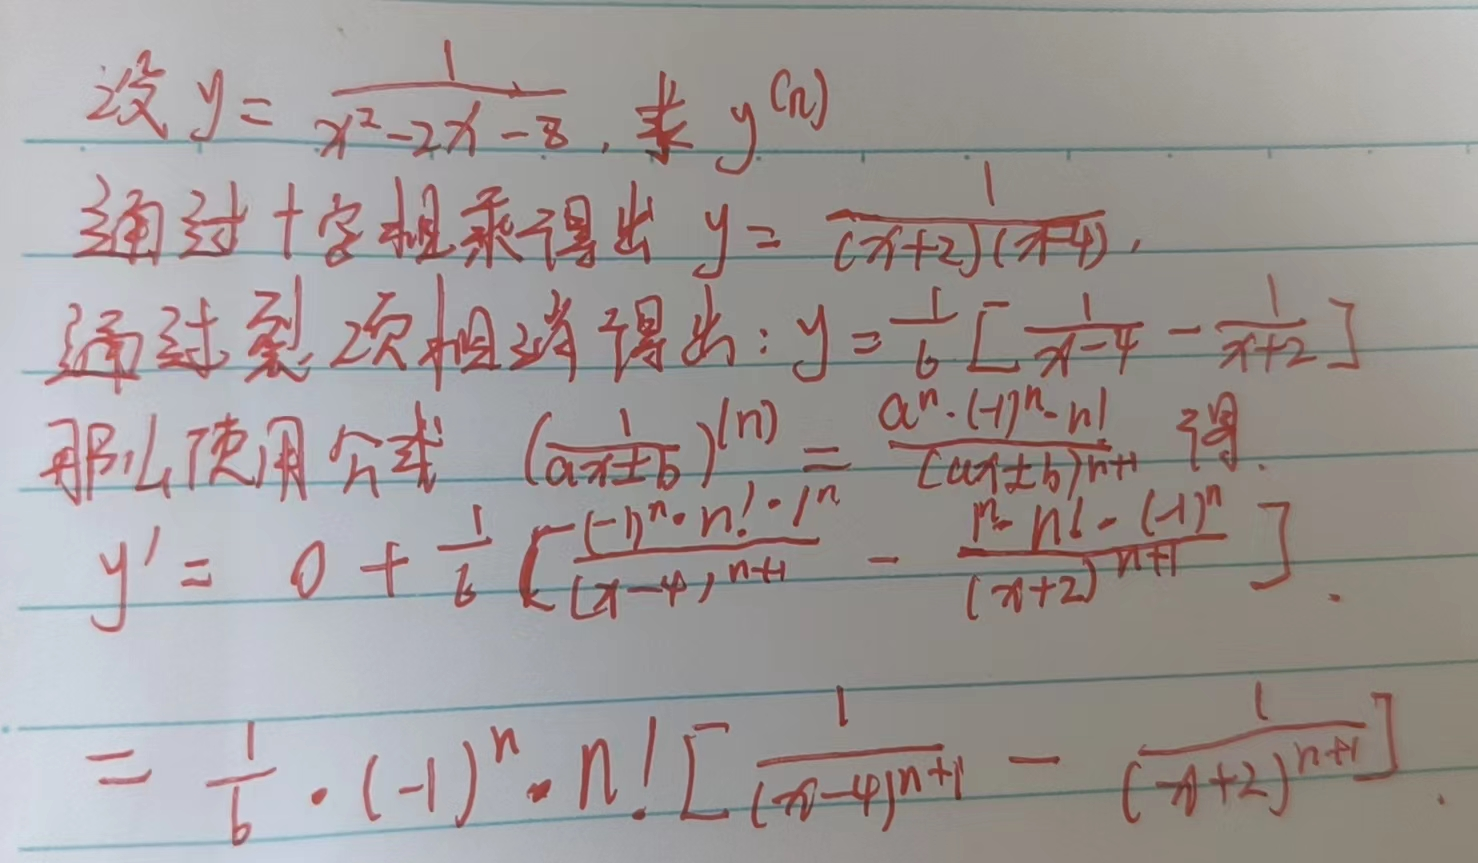 设 y = 1/(x²-2x-8), 求 y^(n)
通过十字相乘得出 y = 1/((x+2)(x-4)),
通过裂项相消得出: y = 1/6 [1/(x-4) - 1/(x+2)]
那么使用公式 (1/(ax±b))^(n) = (a^n · (-1)^n · n!)/((ax±b)^(n+1)) 得.
y' = 0 + 1/6 [((-1)^n · n! · 1^n)/((x-4)^(n+1)) - (1^n · n! · (-1)^n)/((x+2)^(n+1))].
= 1/6 · (-1)^n · n! [1/((x-4)^(n+1)) - 1/((x+2)^(n+1))].